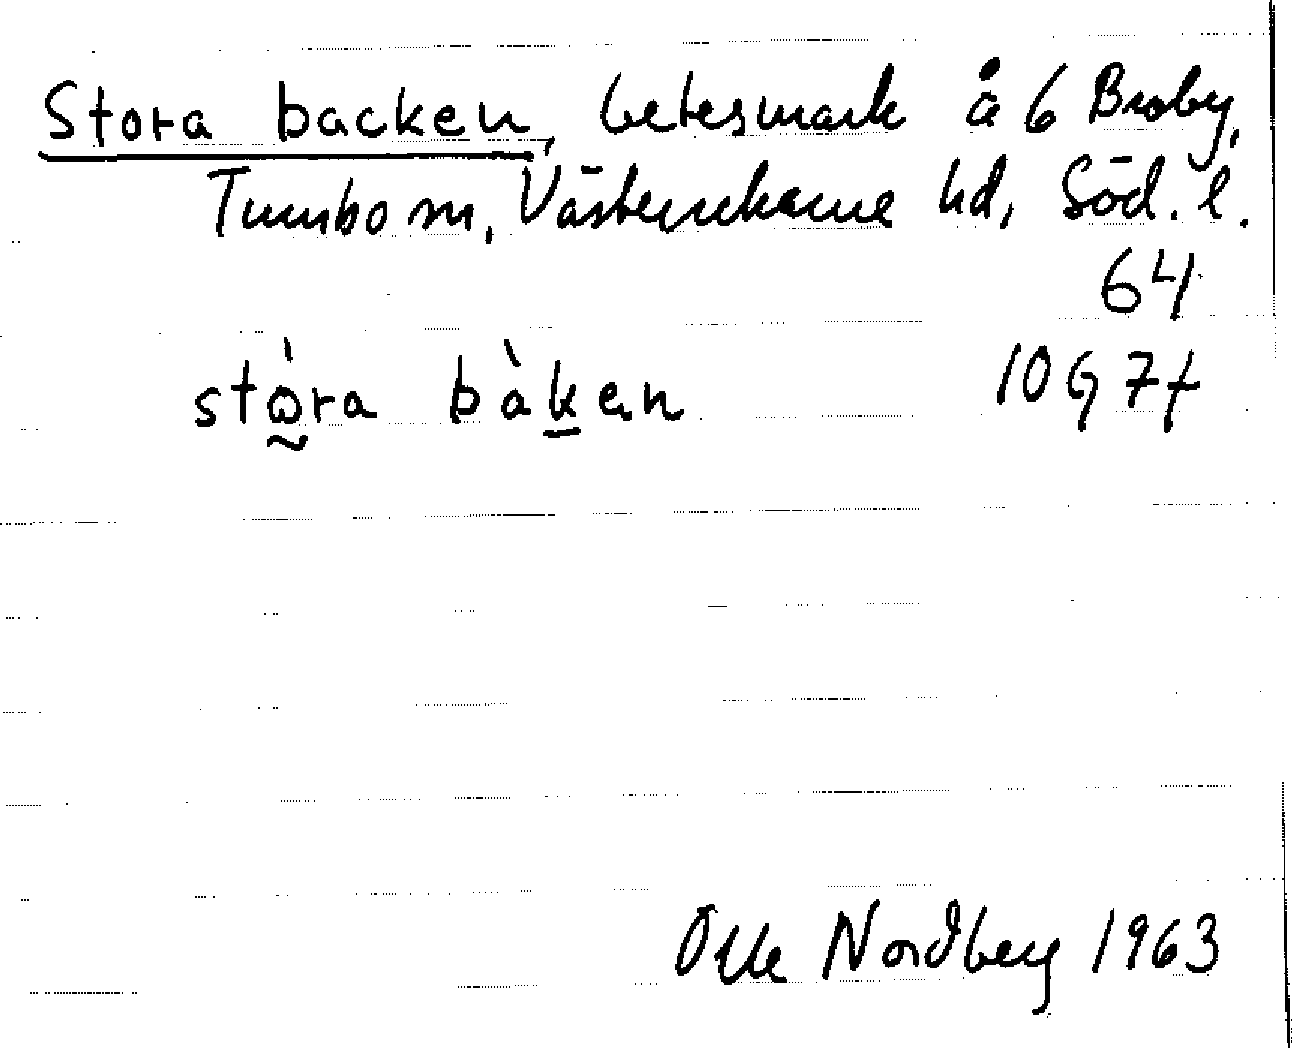 Stora backen, betesmark å 6 Broby,
Tumbo sn, Västerrekarne hd, Söd. l.
64
stò̰ra bàk̲en 10 G 7f
Olle Nordberg 1963